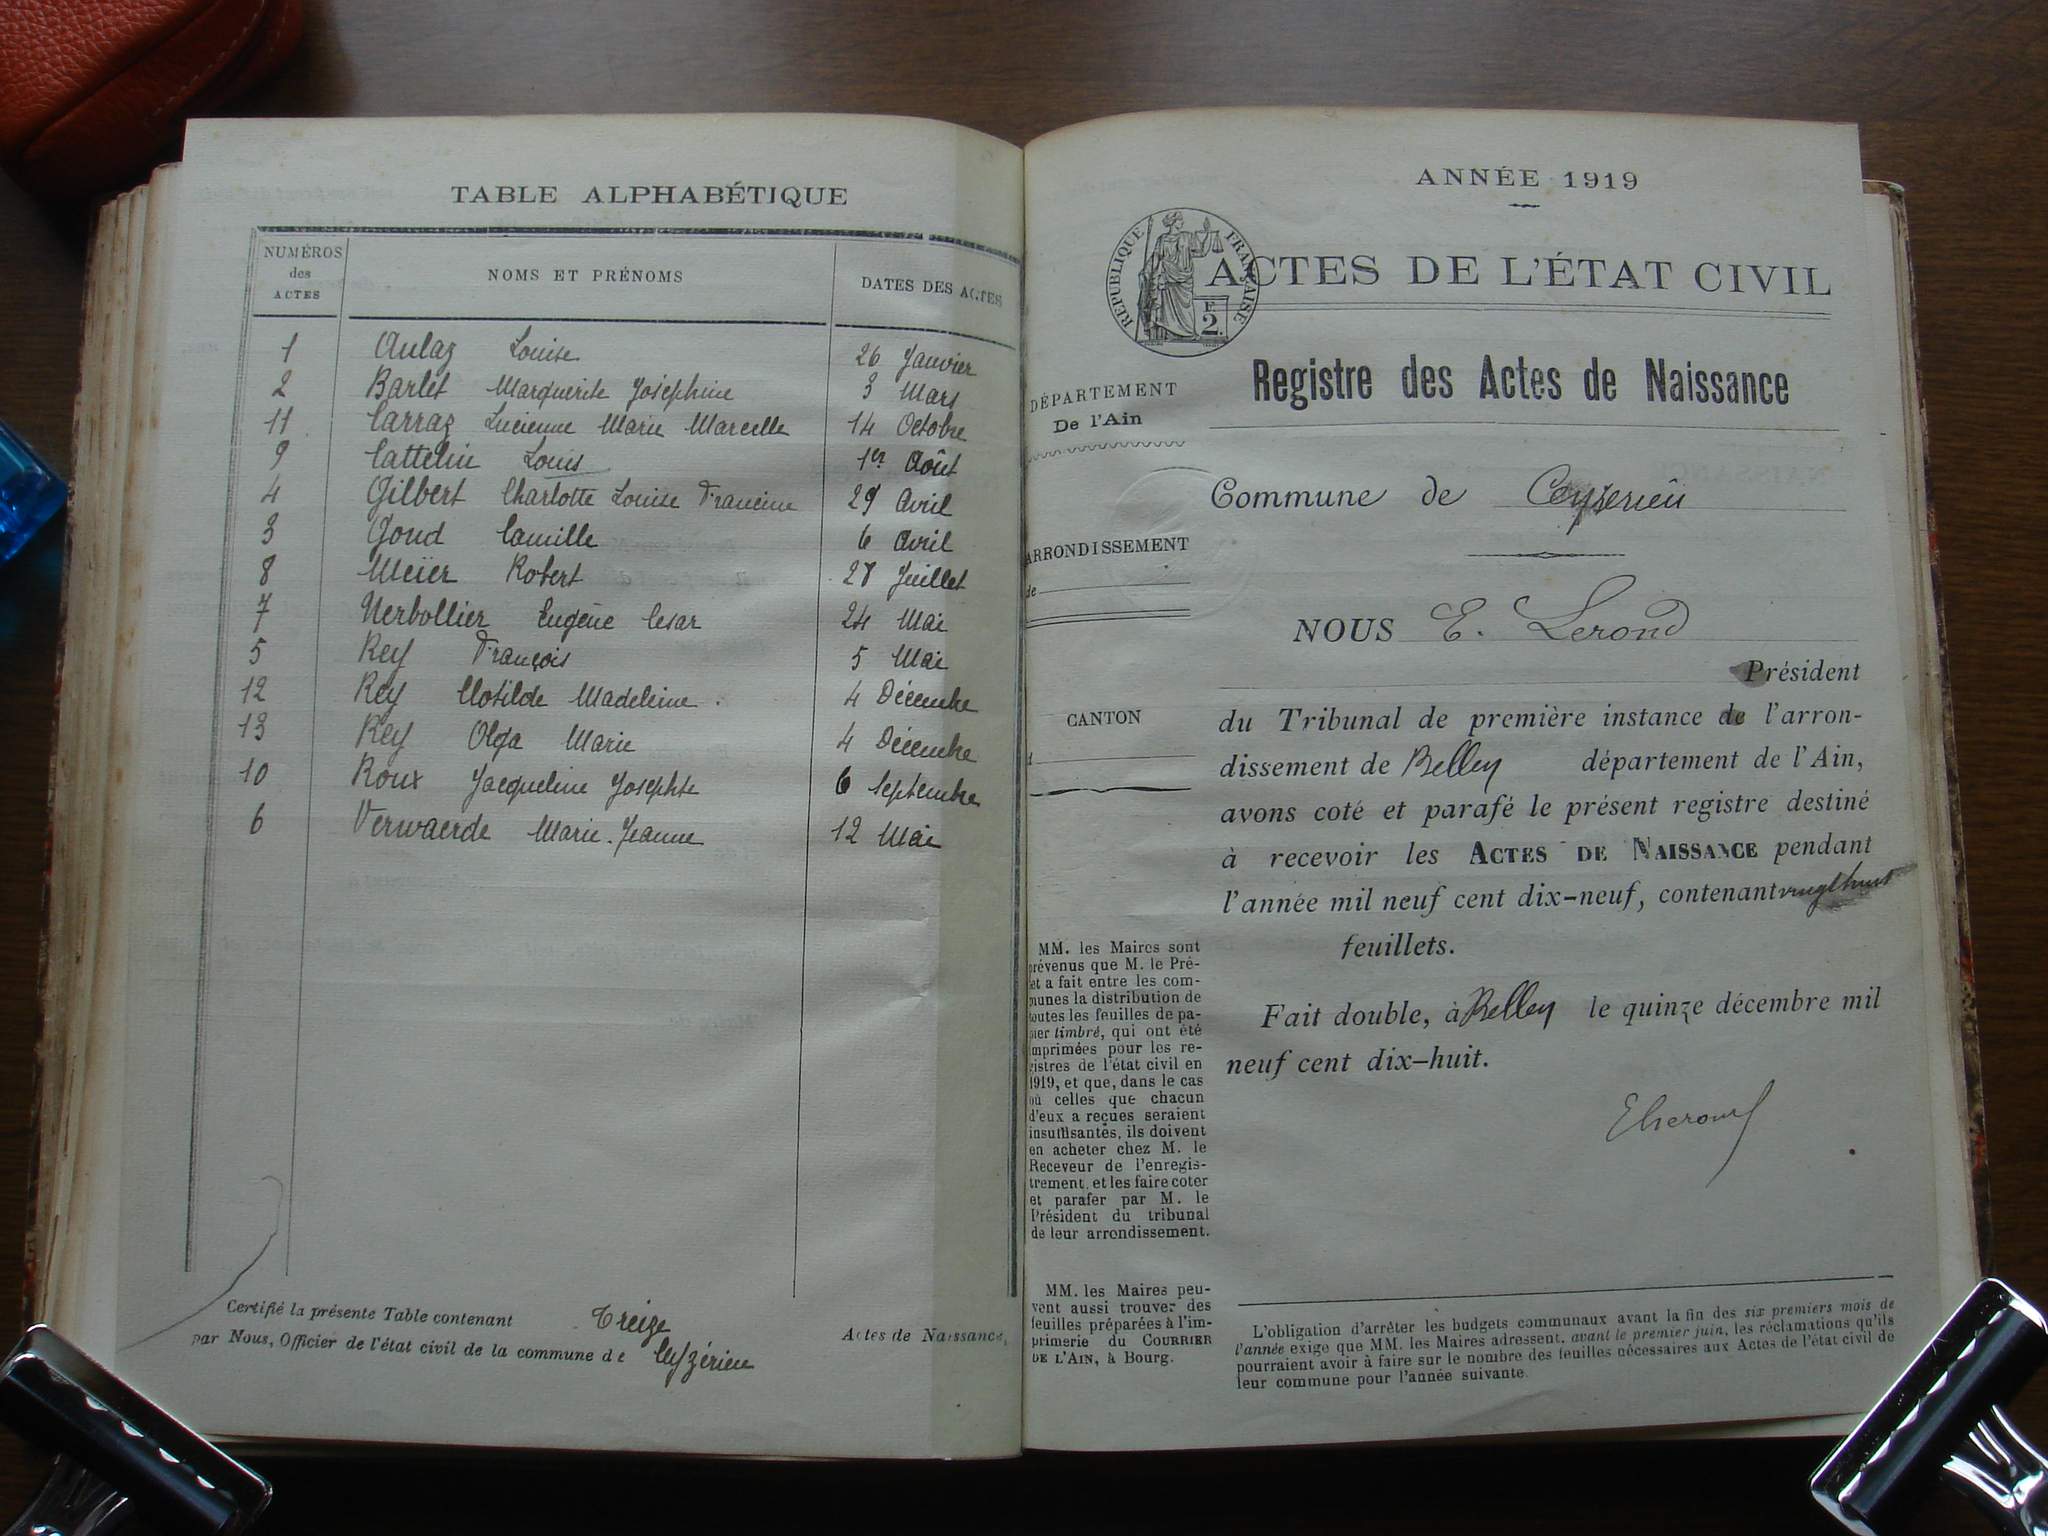 TABLE ALPHABÉTIQUE
NUMÉROS des ACTES NOMS ET PRÉNOMS DATES DES ACTES
1 Aulaz Louise 26 Janvier
2 Barlet Marguerite Joséphine 3 Mars
11 Carraz Lucienne Marie Marcelle 14 Octobre
9 Cattelin Louis 1er Août
4 Gilbert Charlotte Louise Francine 29 Avril
3 Goud Camille 6 Avril
8 Meïer Robert 28 Juillet
7 Nerbollier Eugène Cesar 24 Mai
5 Rey François 5 Mai
12 Rey Clotilde Madeleine 4 Décembre
13 Rey Olga Marie 4 Décembre
10 Roux Jacqueline Josephte 6 Septembre
6 Verwaerde Marie-Jeanne 12 Mai
Certifié la présente Table contenant Treize Actes de Naissance,
par Nous, Officier de l'état civil de la commune de Ceyzérieu
ANNÉE 1919
RÉPUBLIQUE FRANÇAISE
F
2
ACTES DE L'ÉTAT CIVIL
Registre des Actes de Naissance
DÉPARTEMENT
De l'Ain
ARRONDISSEMENT
de
CANTON
MM. les Maires sont
prévenus que M. le Pré-
fet a fait entre les com-
munes la distribution de
toutes les feuilles de pa-
pier timbré, qui ont été
imprimées pour les re-
gistres de l'état civil en
1919, et que, dans le cas
où celles que chacun
d'eux a reçues seraient
insuffisantes, ils doivent
en acheter chez M. le
Receveur de l'enregis-
trement, et les faire coter
et parafer par M. le
Président du tribunal
de leur arrondissement.
MM. les Maires peu-
vent aussi trouver des
feuilles préparées à l'im-
primerie du COURRIER
DE L'AIN, à Bourg.
Commune de Ceyzerieu
NOUS E. Lerond
Président
du Tribunal de première instance de l'arron-
dissement de Belley département de l'Ain,
avons coté et parafé le présent registre destiné
à recevoir les ACTES DE NAISSANCE pendant
l'année mil neuf cent dix-neuf, contenant vingt huit
feuillets.
Fait double, à Belley le quinze décembre mil
neuf cent dix-huit.
ELerond
L'obligation d'arrêter les budgets communaux avant la fin des six premiers mois de
l'année exige que MM. les Maires adressent, avant le premier juin, les réclamations qu'ils
pourraient avoir à faire sur le nombre des feuilles nécessaires aux Actes de l'état civil de
leur commune pour l'année suivante.